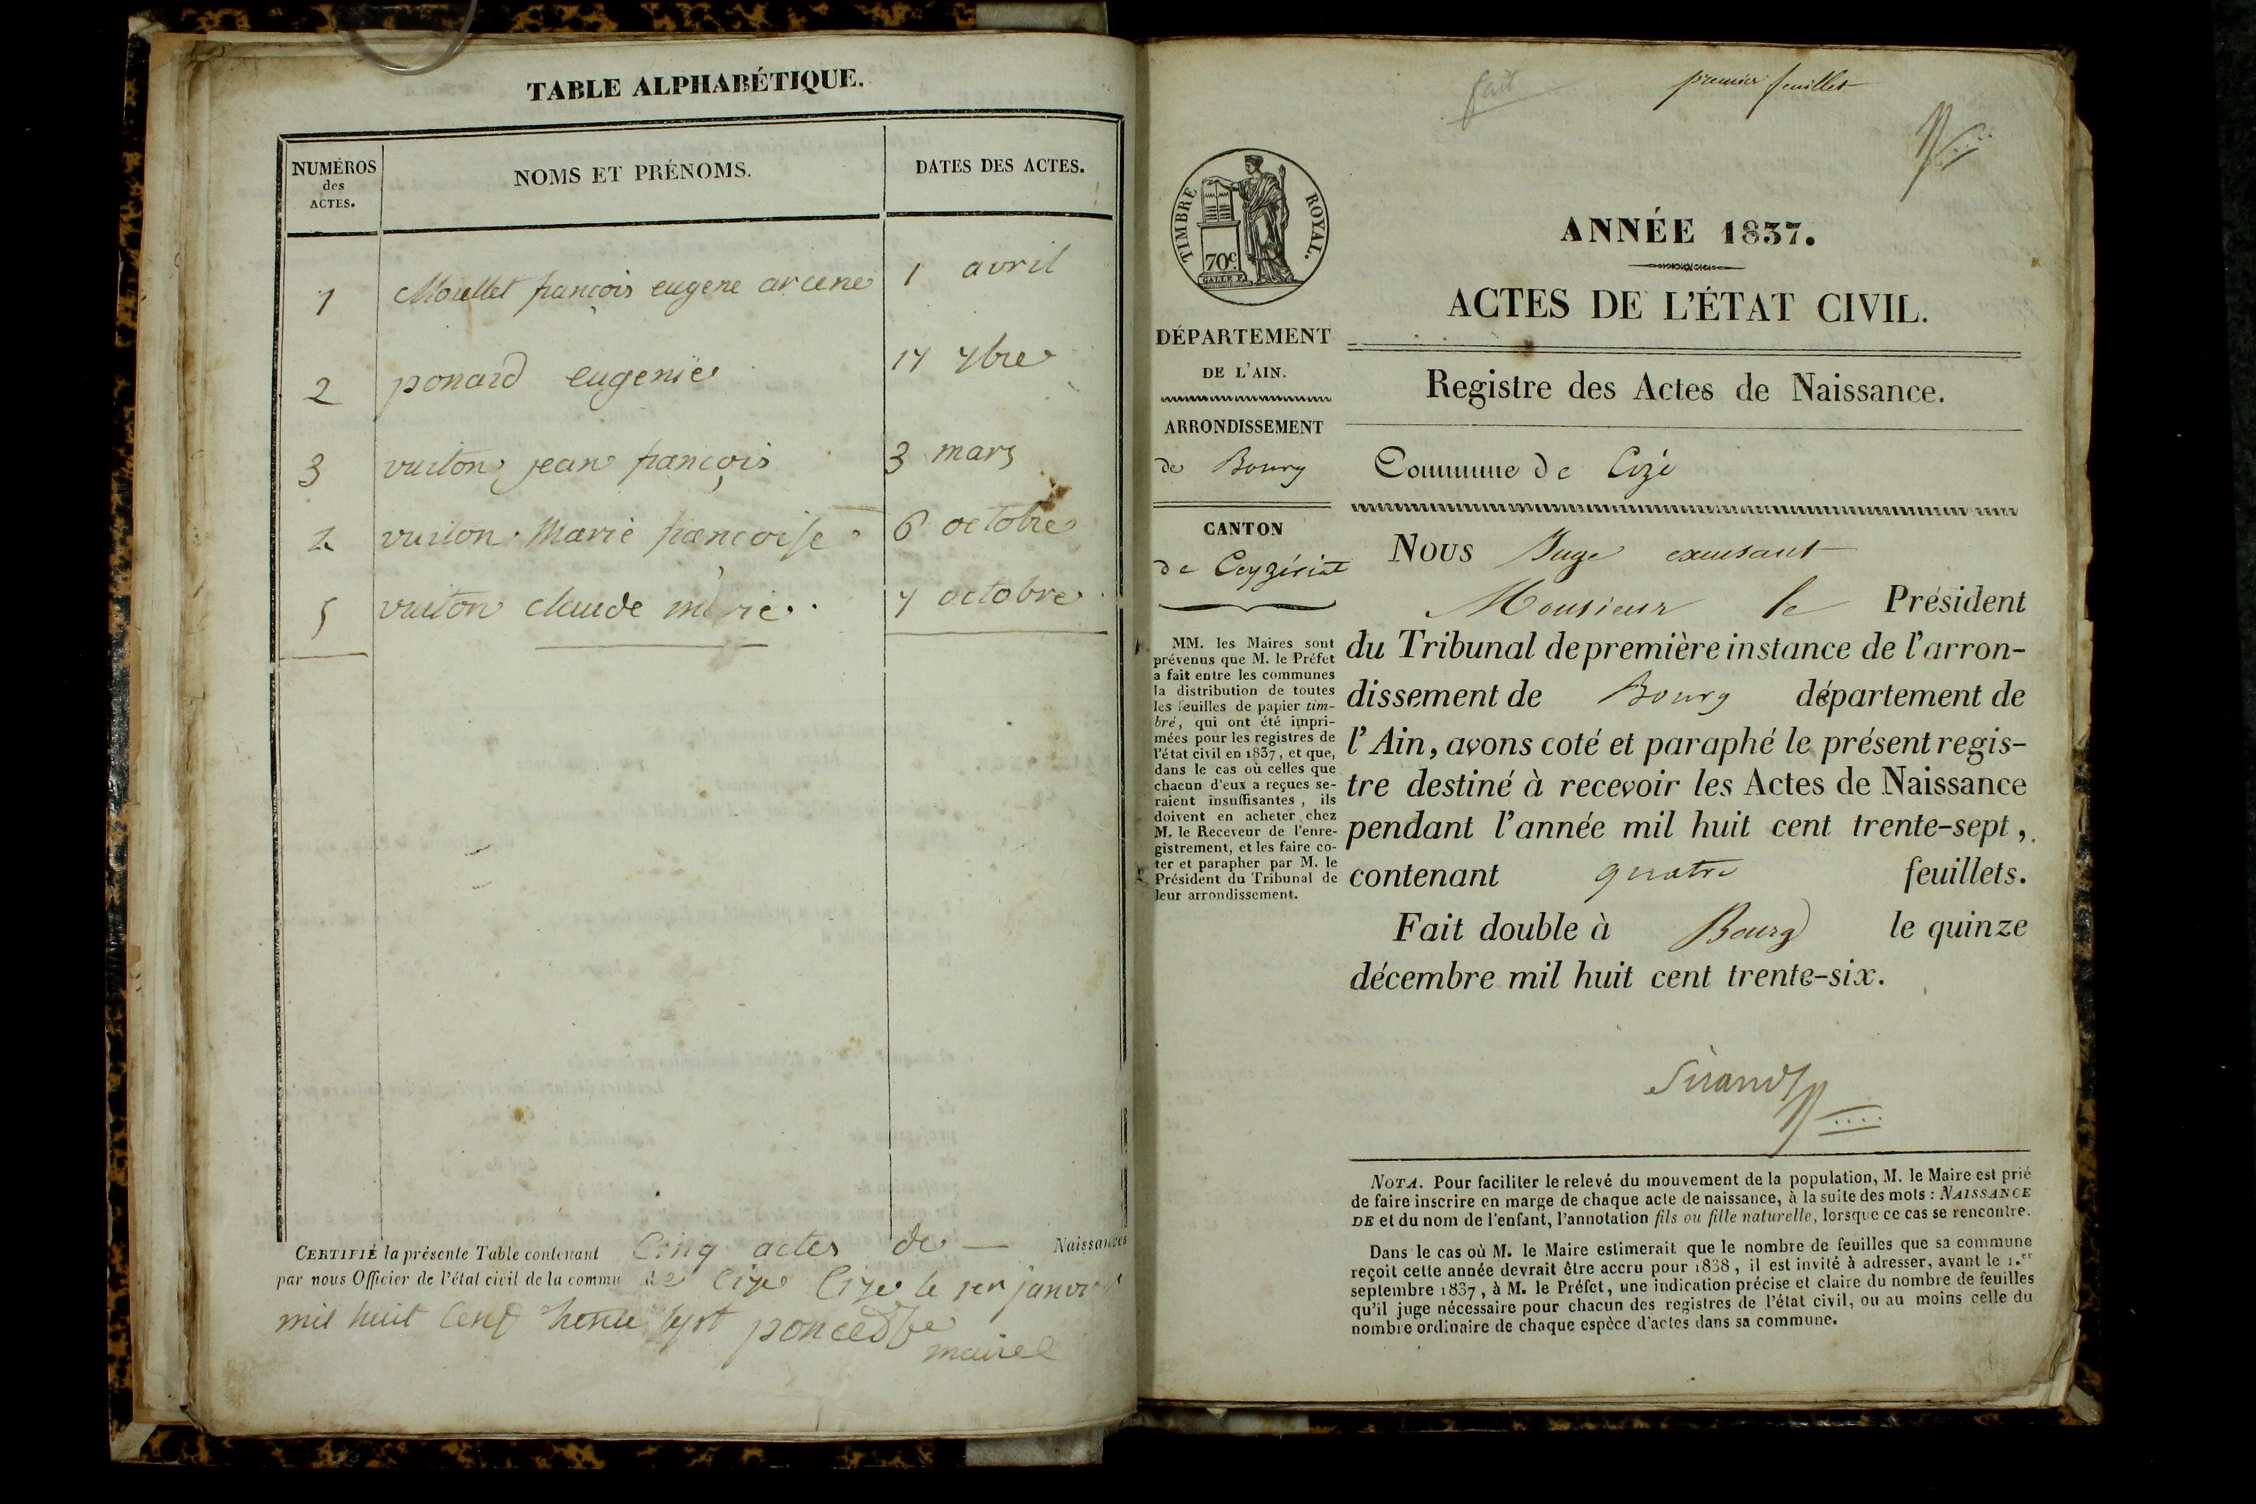 TABLE ALPHABÉTIQUE.
NUMÉROS des ACTES.
NOMS ET PRÉNOMS.
DATES DES ACTES.
1 Moullet françois eugene arcene 1 avril
2 ponard eugenie 17 7bre
3 vuiton jean françois 3 mars
vuiton Marie françoise 6 octobre
5 vuiton claude marie 7 octobre
CERTIFIÉ la présente Table contenant Cinq actes de — Naissances
par nous Officier de l'état civil de la commune de Cize Cize le 1er janvier
mil huit Cent trente sept poncet
maire
fait
premier feuillet
TIMBRE ROYAL.
70c
GALLE F.
DÉPARTEMENT
DE L'AIN.
ARRONDISSEMENT
de Bourg
CANTON
de Ceyzériat
MM. les Maires sont
prévenus que M. le Préfet
a fait entre les communes
la distribution de toutes
les feuilles de papier tim-
bré, qui ont été impri-
mées pour les registres de
l'état civil en 1837, et que,
dans le cas où celles que
chacun d'eux a reçues se-
raient insuffisantes, ils
doivent en acheter chez
M. le Receveur de l'enre-
gistrement, et les faire co-
ter et parapher par M. le
Président du Tribunal de
leur arrondissement.
ANNÉE 1837.
ACTES DE L'ÉTAT CIVIL.
Registre des Actes de Naissance.
Commune de Cize
Nous Juge excusant
Monsieur le Président
du Tribunal de première instance de l'arron-
dissement de Bourg département de
l'Ain, avons coté et paraphé le présent regis-
tre destiné à recevoir les Actes de Naissance
pendant l'année mil huit cent trente-sept,
contenant quatre feuillets.
Fait double à Bourg le quinze
décembre mil huit cent trente-six.
Sirand
NOTA. Pour faciliter le relevé du mouvement de la population, M. le Maire est prié
de faire inscrire en marge de chaque acte de naissance, à la suite des mots : NAISSANCE
DE et du nom de l'enfant, l'annotation fils ou fille naturelle, lorsque ce cas se rencontre.
Dans le cas où M. le Maire estimerait que le nombre de feuilles que sa commune
reçoit cette année devrait être accru pour 1838, il est invité à adresser, avant le 1.er
septembre 1837, à M. le Préfet, une indication précise et claire du nombre de feuilles
qu'il juge nécessaire pour chacun des registres de l'état civil, ou au moins celle du
nombre ordinaire de chaque espèce d'actes dans sa commune.